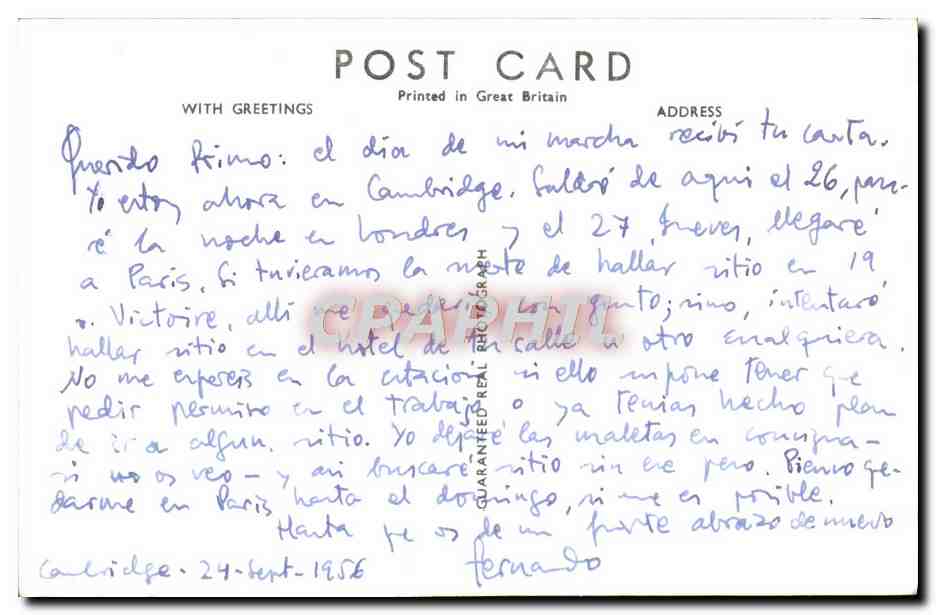 POST CARD
Printed in Great Britain
WITH GREETINGS
ADDRESS
Querido Primo: el día de mi marcha recibí tu carta.
Yo estoy ahora en Cambridge. Saldré de aqui el 26, pasa-
ré la noche en Londres y el 27, Jueves, llegaré
a Paris. Si tuvieramos la suerte de hallar sitio en 19
r. Victoire, allí me quedaría con gusto; sino, intentaré
hallar sitio en el hotel de tu calle u otro cualquiera.
No me espereis en la estación si ello supone tener que
pedir permiso en el trabajo o ya tenias hecho plan
de ir a algun sitio. Yo dejaré las maletas en consigna-
si no os veo - y asi buscaré sitio sin ese peso. Pienso que-
darme en Paris hasta el domingo, si me es posible.
Hasta que os de un fuerte abrazo de nuevo
Fernando
Cambridge - 24 - Sept - 1956
GUARANTEED REAL PHOTOGRAPH
CPAPHIL